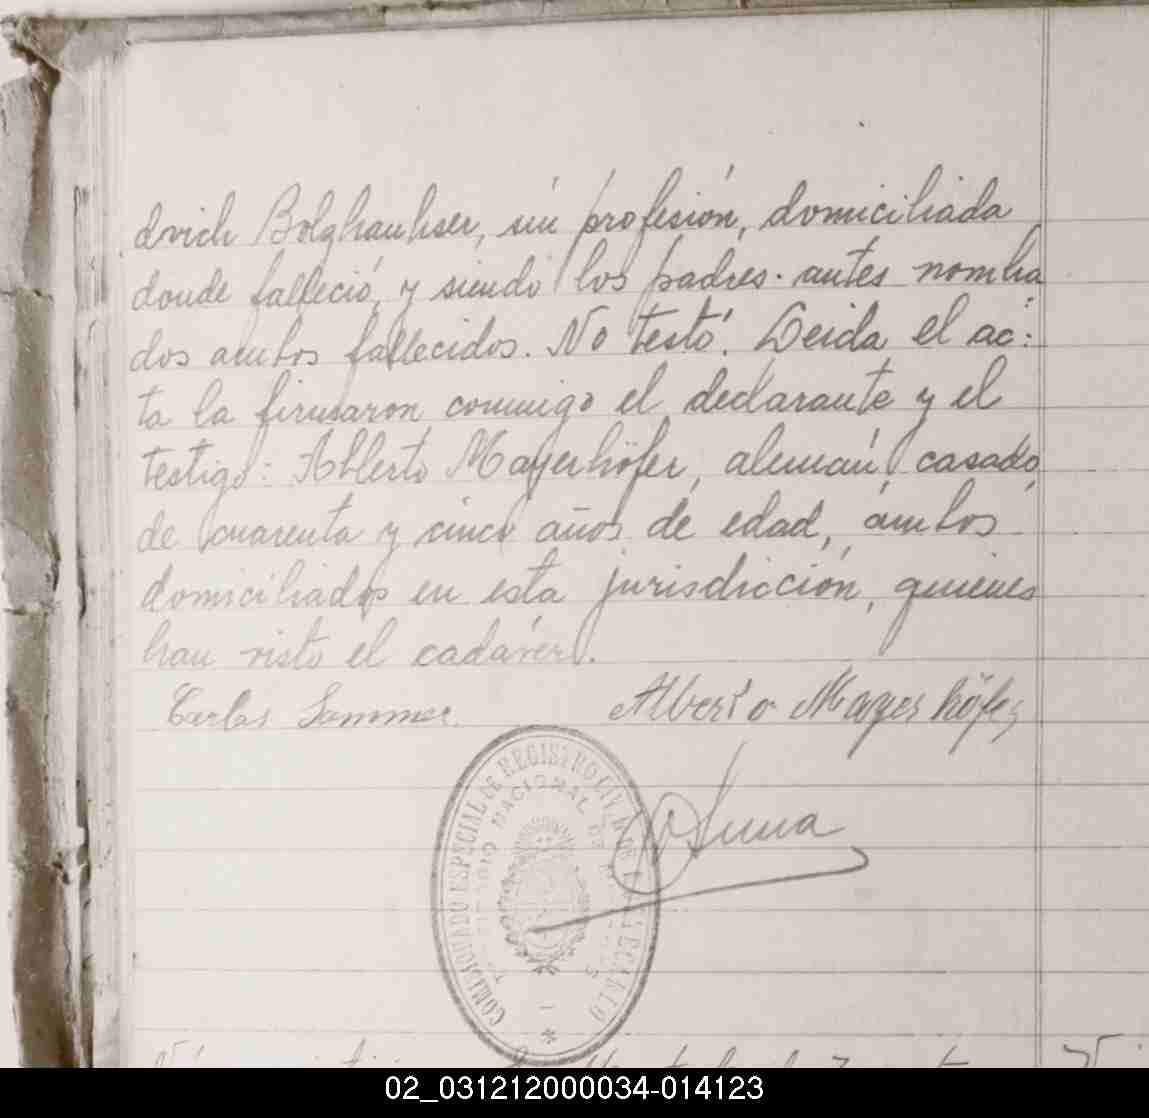 dvich Bolghauhser, sin profesión, domiciliada
donde falleció, y siendo los padres antes nombra
dos ambos fallecidos. No testó. Leida el ac:
ta la firmaron conmigo el declarante y el
testigo: Alberto Mayerhöfer, alemán, casado,
de cuarenta y cinco años de edad, ambos
domiciliados en esta jurisdicción, quienes
han visto el cadáver.
Carlos Sommer. Alberto Mayerhöfer
COMISIONADO ESPECIAL DE REGISTRO CIVIL DE
NACIONAL DE
02_031212000034-014123